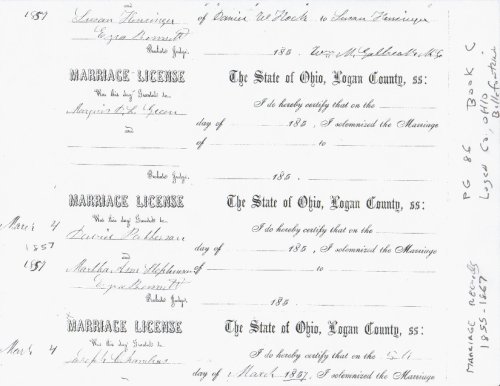 1857
Susan Hensinger
of Daniel W Hoak to Susan Hensinger
Ezra Bennett
Probate Judge.
185 . Wm M Galbreath M.G
MARRIAGE LICENSE
Was this day Granted to
August L. Green
&
Probate Judge.
The State of Ohio, Logan County, ss:
I do hereby certify that on the
day of 185 , I solemnized the Marriage
of to
185 .
MARRIAGE LICENSE
Was this day Granted to
March 4
1857
David Patterson
&
1857
Martha Ann Stephenson
Ezra Bennett
Probate Judge.
The State of Ohio, Logan County, ss:
I do hereby certify that on the
day of 185 , I solemnized the Marriage
of to
185
MARRIAGE LICENSE
Was this day Granted to
March 4
Joseph
The State of Ohio, Logan County, ss:
I do hereby certify that on the 5th
day of March 1857, I solemnized the Marriage
PG 86 BOOK C
Logan Co, OHIO
Bellefontaine
MARRIAGE RECORDS
1855-1867